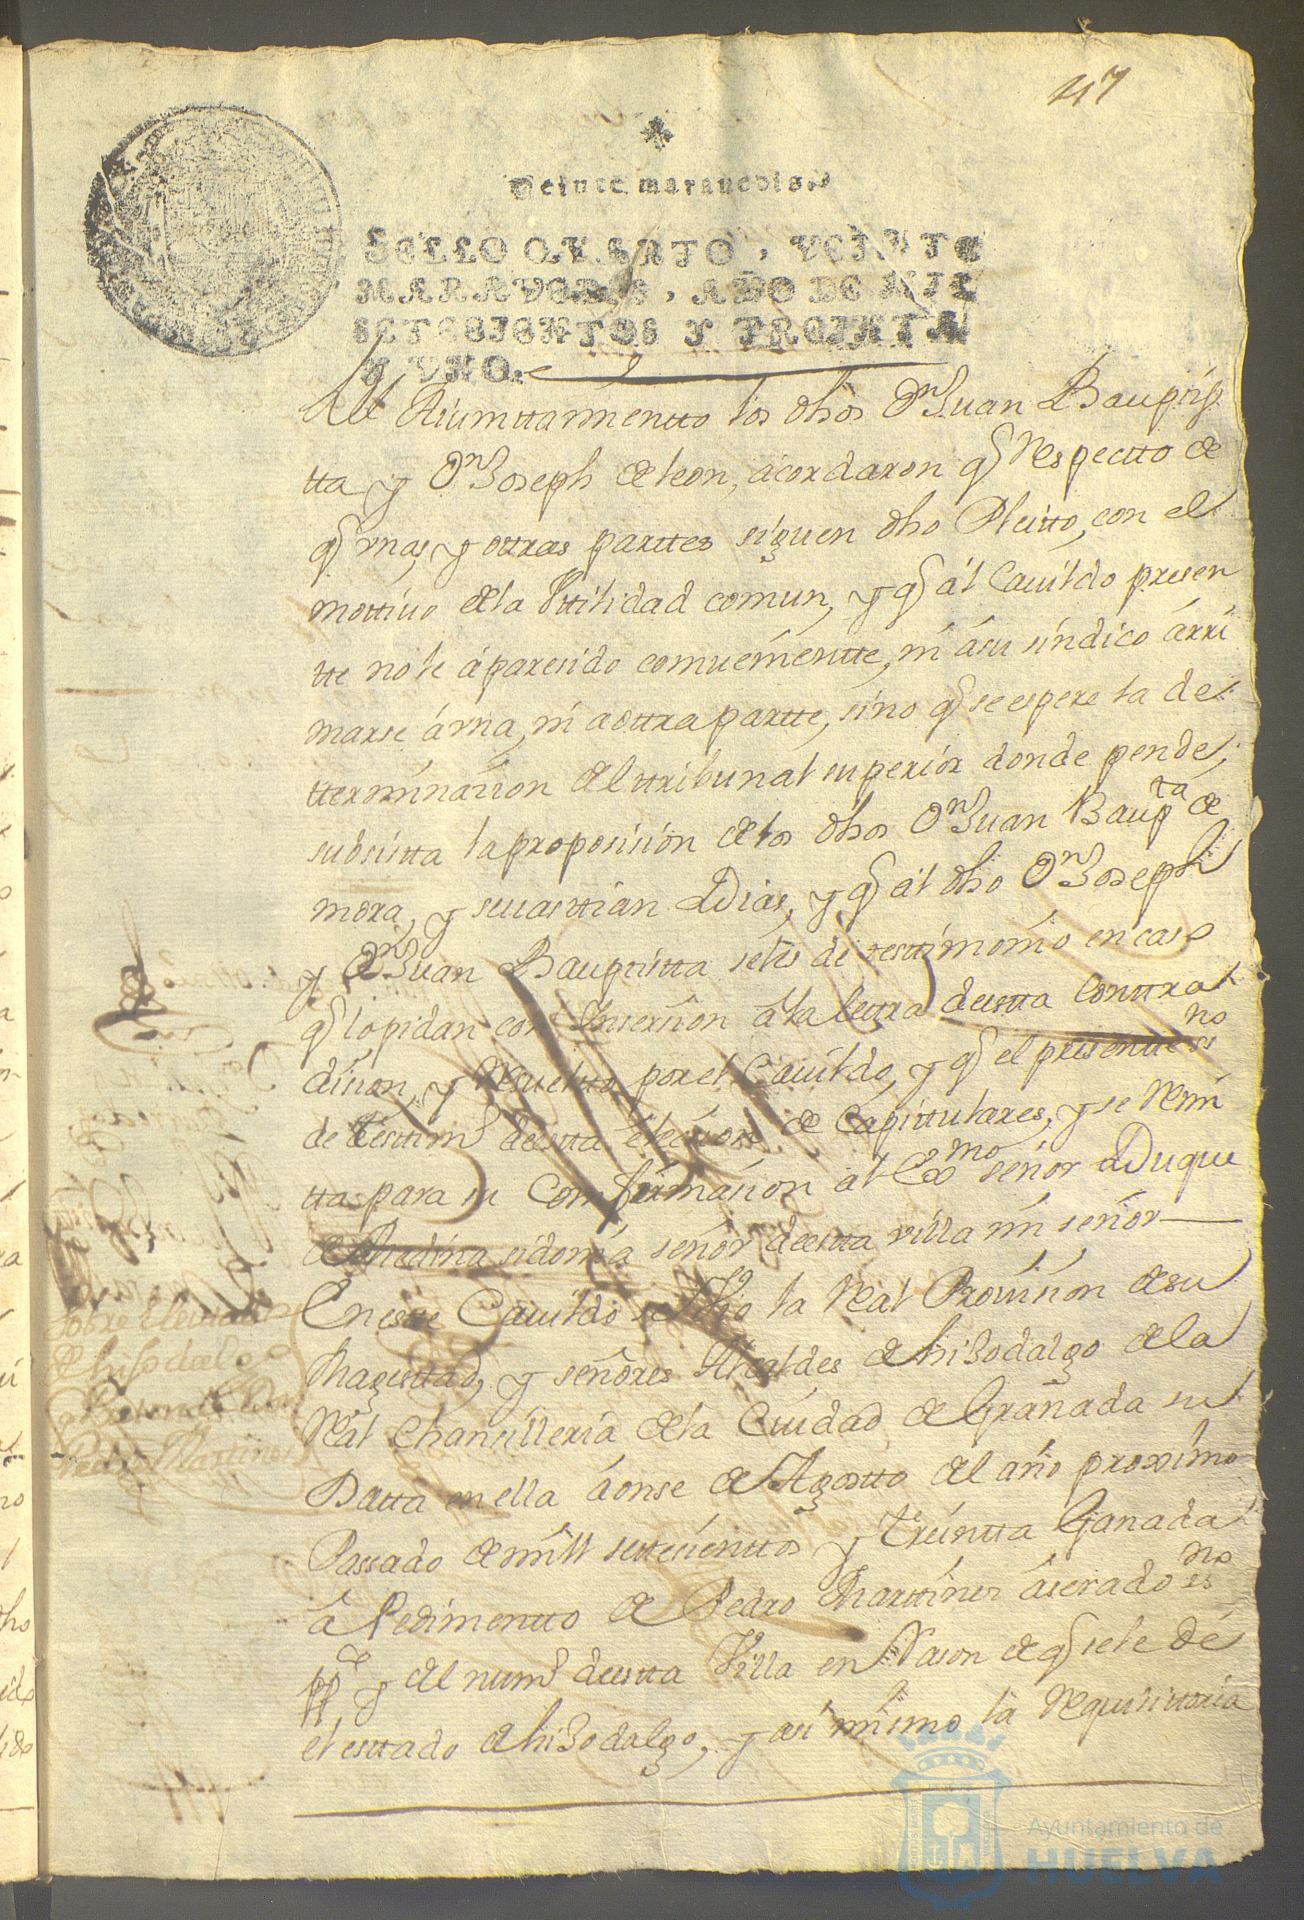 417
Veinte maravedis.
SELLO QVARTO, VEINTE
MARAVEDIS, AÑO DE MIL
SETECIENTOS Y TREINTA
Y VNO.
los dhos Dn Juan Baupis
tta y Dn Joseph de leon, acordaron q Respectto de
q mas, y ottras parttes siguen dho Pleitto, con el
mottivo de la Vttilidad comun, y q al Cavildo presen
tte no le a paresido combeniente, ni a su sindico arri
marse a vna, ni a ottra partte, sino q se espere la de
tterminasion del ttribunal superior donde pende,
subsistta la proposision de los dhos Dn Juan Baupta de
mora, y sevasttian Dias, y q al dho Dn Joseph
y Dn Juan Bauptistta se les de testtimonio en caso
q lo pidan con Insersion a la lettra destta Conttra
dision, y Resuelto por el Cavildo, y q el presentte esno
de testtimo destta elecsion de Capittulares, y se Remi
tta para su Comfirmasion al Exmo señor Duque
de Medina sidonia señor destta villa mi señor
En este Cavildo se vio la Real Provision de su
Magesttad, y señores Alcaldes de hisodalgo de la
Real Chansilleria de la Ciudad de Granada su
Datta en ella a onse de Agostto del año proximo
Passado de mill settesienttos y treintta Ganada
a Pedimentto de Pedro Marttines aserado esno
ppco y del numo destta Villa en Rason de q se le de
el esttado de hisodalgo, y asi mismo la Requisittoria
Sobre el esttado
de hisodalgo
q Pretende
Pedro Martines
Ayuntamiento de
HUELVA